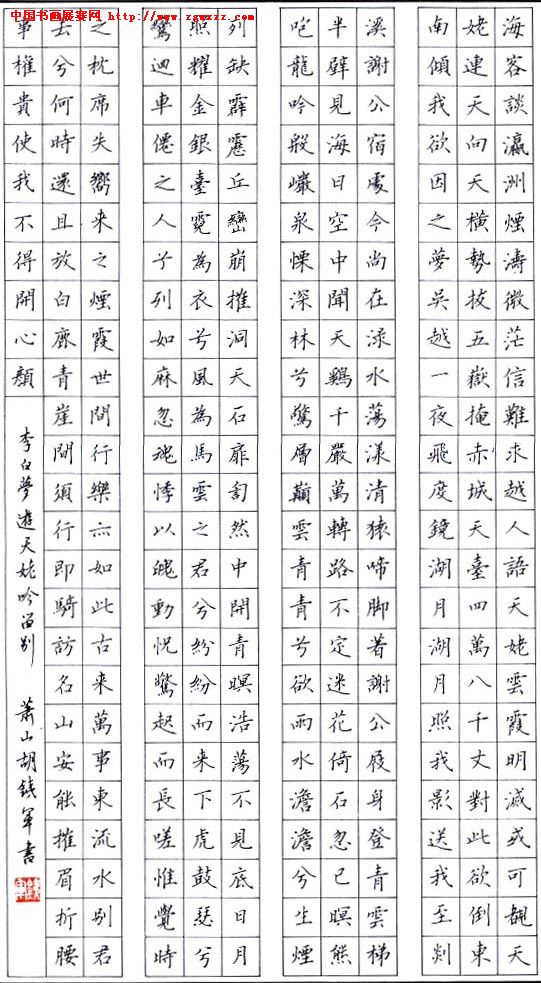 中国书画展赛网
海客談瀛洲煙濤微茫信難求越人語天姥雲霞明滅或可覩天
姥連天向天橫勢拔五嶽掩赤城天臺四萬八千丈對此欲倒東
南傾我欲因之夢吳越一夜飛度鏡湖月湖月照我影送我至剡
溪謝公宿處今尚在渌水蕩漾清猿啼脚著謝公屐身登青雲梯
半壁見海日空中聞天鷄千嚴萬轉路不定迷花倚石忽已暝熊
咆龍吟殷巖泉慄深林兮驚層巔雲青青兮欲雨水澹澹兮生煙
列缺霹靂丘巒崩摧洞天石扉訇然中開青暝浩蕩不見底日月
照耀金銀臺霓為衣兮風為馬雲之君兮紛紛而来下虎鼓瑟兮
鸞迴車僊之人兮列如麻忽魂悸以魄動怳驚起而長嗟惟覺時
之枕席失嚮来之煙霞世間行樂亦如此古来萬事東流水别君
去兮何時還且放白鹿青崖間須行即騎訪名山安能摧眉折腰
事權貴使我不得開心顏
李白夢遊天姥吟留别 蕭山胡鐵軍書